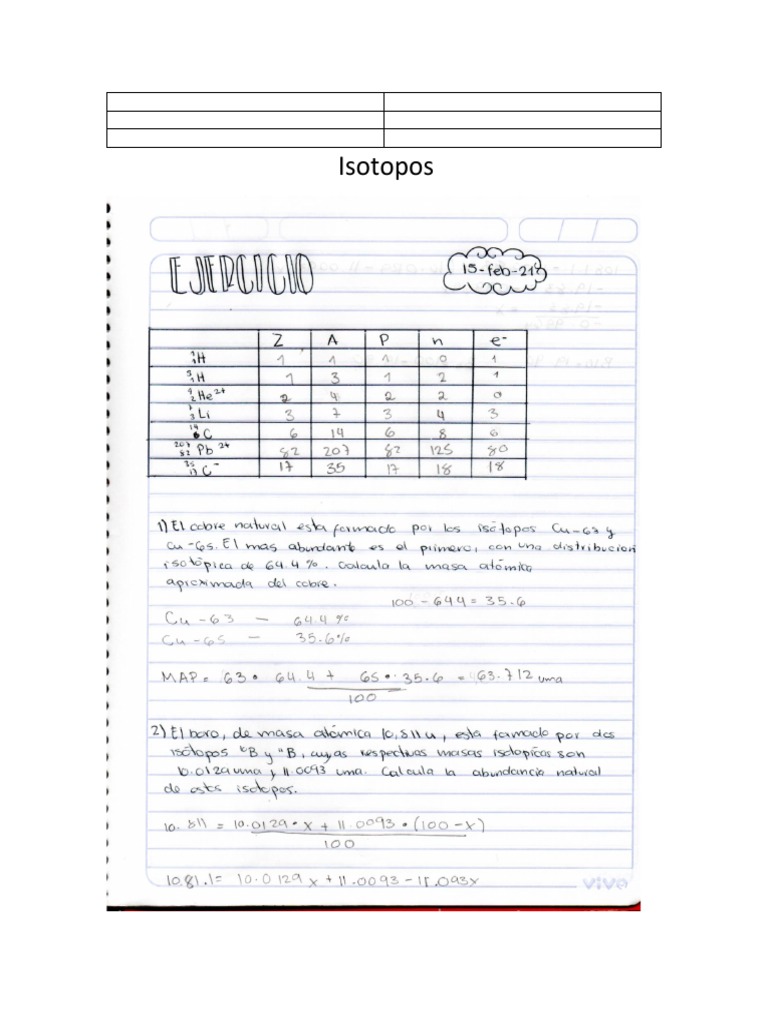 Isotopos
EJERCICIO
15-feb-21
Z A P n e⁻
¹₁H 1 1 1 0 1
³₁H 1 3 1 2 1
⁴₂He²⁺ 2 4 2 2 0
⁷₃Li 3 7 3 4 3
¹⁴₆C 6 14 6 8 6
²⁰⁷₈₂Pb²⁺ 82 207 82 125 80
³⁵₁₇C⁻ 17 35 17 18 18
1) El cobre natural esta formado por los isótopos Cu-63 y
Cu-65. El mas abundante es el primero, con una distribucion
isotópica de 64.4%. Calcula la masa atómica
aproximada del cobre.
100 - 644 = 35.6
Cu - 63 — 64.4%
Cu - 65 — 35.6%
MAP = 63 • 64.4 + 65 • 35.6 = 63.712 uma
100
2) El boro, de masa atómica 10,811 u, esta formado por dos
isótopos ¹⁰B y ¹¹B, cuyas respectivas masas isotopicas son
10.0129 uma y 11.0093 uma. Calcula la abundancia natural
de estos isotopos.
10.811 = 10.0129 • x + 11.0093 • (100 - x)
100
1081.1 = 10.0129x + 11.0093 - 11.093x
vivo